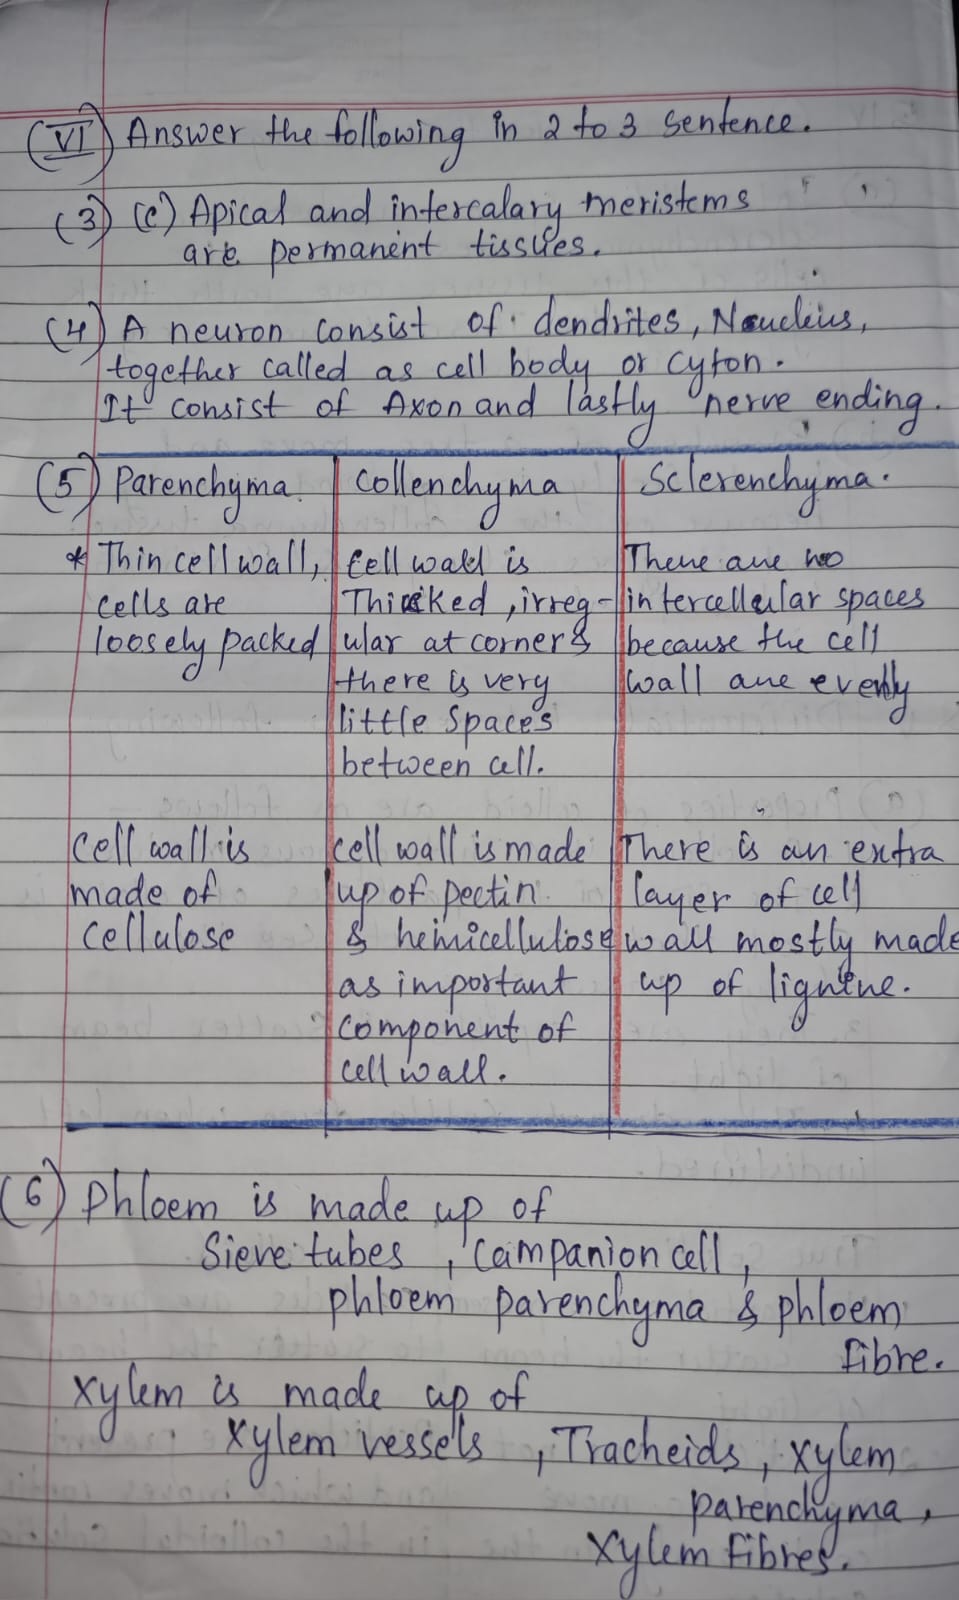 (VI) Answer the following in 2 to 3 sentence.
(3) (c) Apical and intercalary meristems
are permanent tissues.
(4) A neuron consist of dendrites, Neucleius,
together called as cell body or cyton.
It consist of Axon and lastly nerve ending.
(5) Parenchyma.
* Thin cell wall,
cells are
loosely packed
Cell wall is
made of
cellulose
Collenchyma
Cell wall is
Thicked, irreg-
ular at corners
there is very
little spaces
between cell.
cell wall is made
up of pectin
& hemicellulose
as important
component of
cell wall.
Sclerenchyma.
There are no
intercellular spaces
because the cell
wall are evenly
There is an extra
layer of cell
wall mostly made
up of lignine.
(6) Phloem is made up of
Sieve tubes, Companion cell,
phloem parenchyma & phloem
fibre.
Xylem is made up of
Xylem vessels, Tracheids, xylem
parenchyma,
Xylem fibres.